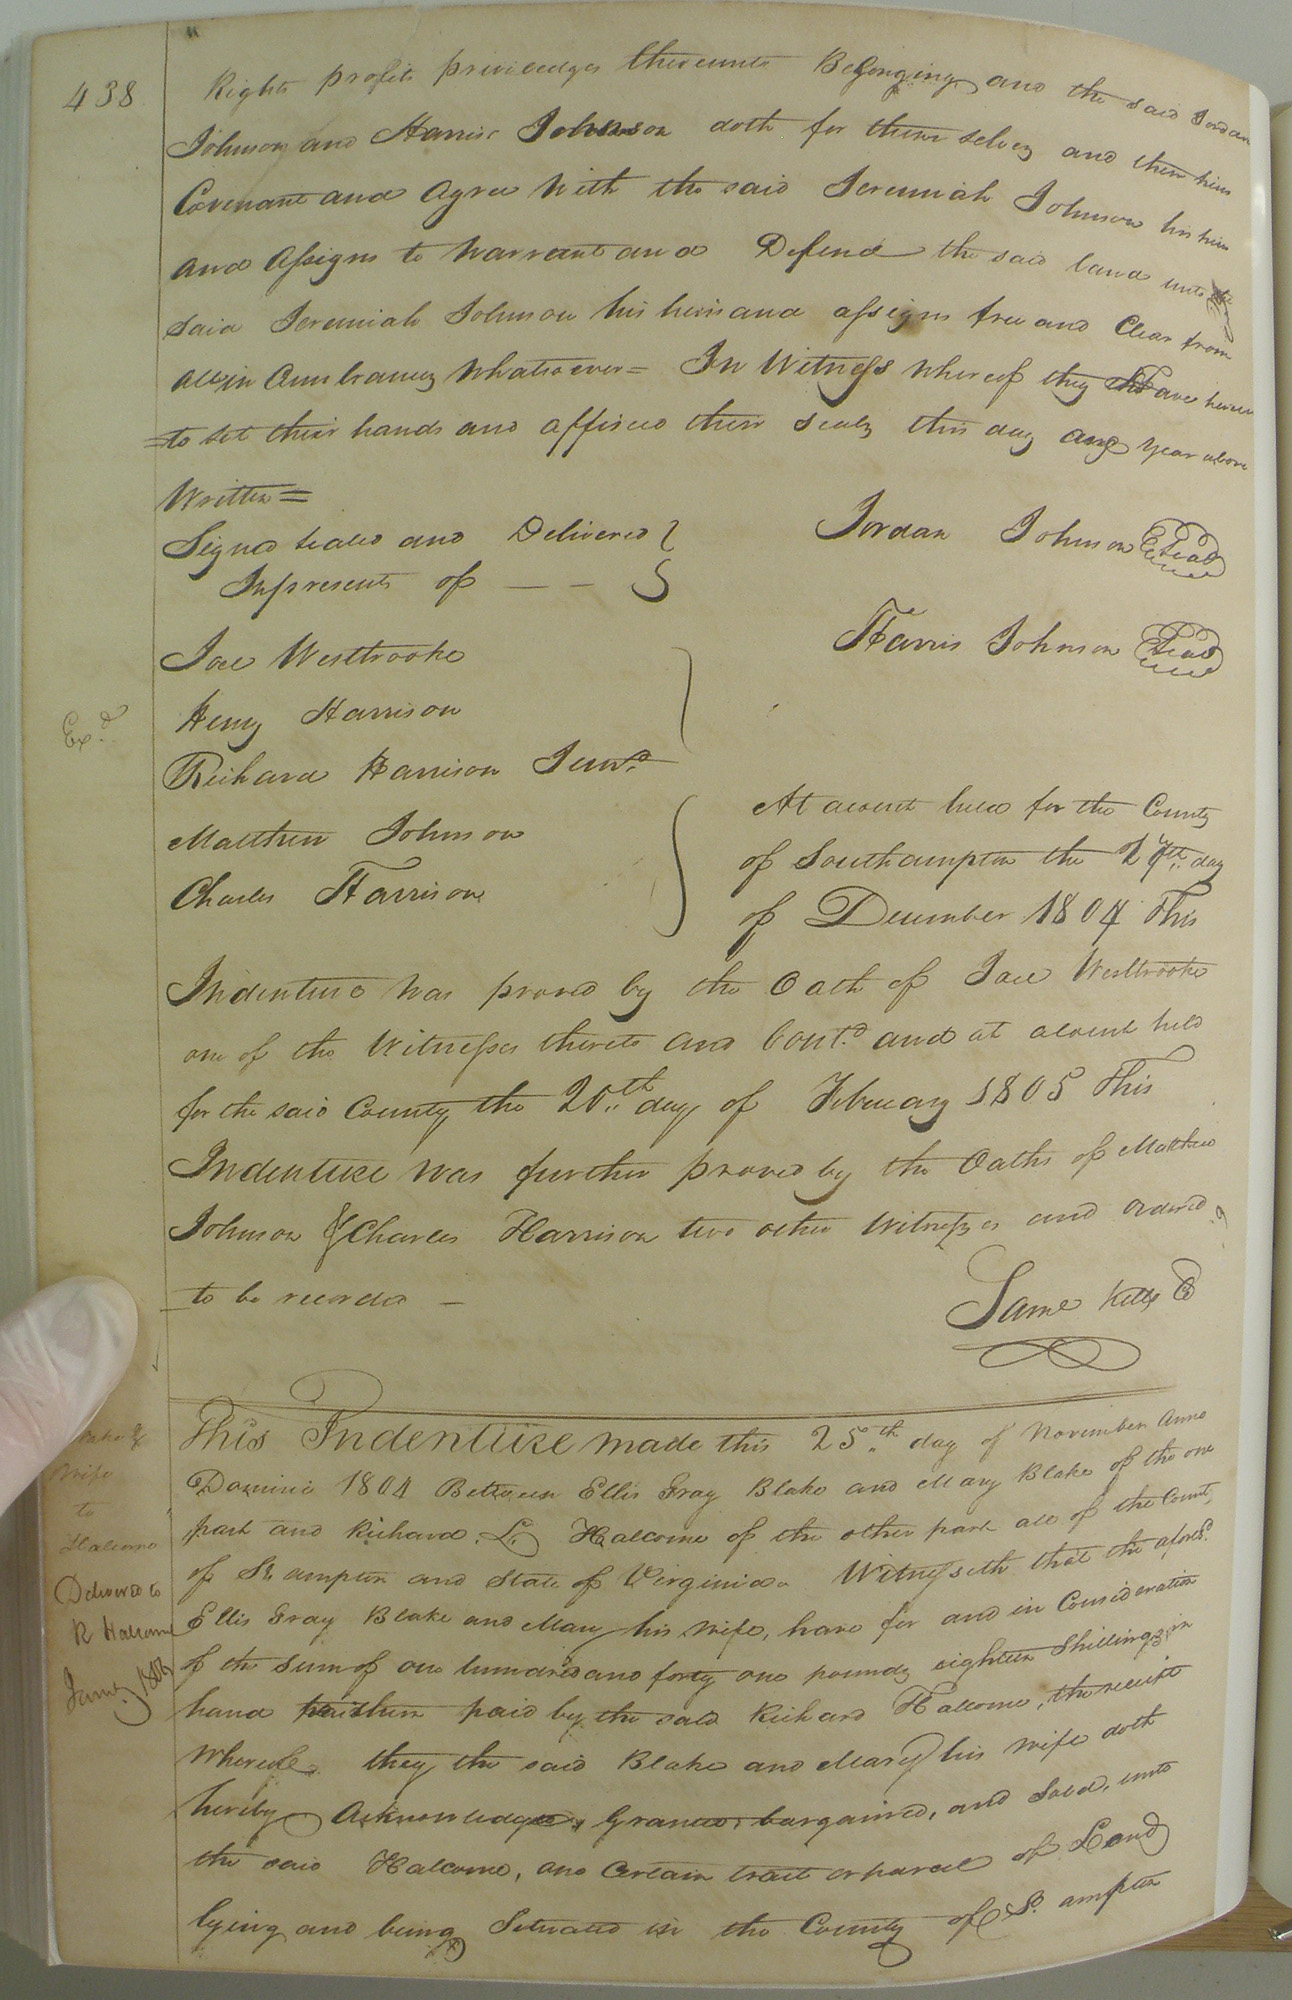 438
Rights profits priviledges thereunto Belonging and the said Jordan
Johnson and Harris Johnson doth for them selves and their heirs
Covenant and Agree With the said Jeremiah Johnson his heirs
and Assigns to Warrant and Defend the said land unto the
said Jeremiah Johnson his heirs and assigns free and Clear from
all in Cumbrances Whatsoever = In Witness whereof they have hereun
=to set their hands and affixed their seals this day and year above
Written =
Signed sealed and Delivered
In presents of — —
Jordan Johnson Seal
Harris Johnson Seal
Joel Westbrooke
Henry Harrison
Exd
Richard Harrison Junr
Matthew Johnson
Charles Harrison
At a court held for the County
of Southampton the day
of December 1804 This
Indenture was proved by the Oath of Joel Westbrooke
one of the Witnesses thereto and Contd. and at a court held
for the said County the 20th day of February 1805 This
Indenture was further proved by the Oaths of Matthew
Johnson & Charles Harrison two other Witnesses and ordered
to be recorded —
Same Kello C
This Indenture made this 25th day of November Anno
Domini 1804 Between Ellis Gray Blake and Mary Blake of the one
part and Richard L. Halcome of the other part all of the County
of So. ampton and State of Virginia Witnesseth that the afores.d
Ellis Gray Blake and Mary his wife, have for and in Consideration
of the sum of one hundred and forty one pounds eighteen Shillings, in
hand paid by the said Richard Halcome, the receipt
Whereof they the said Blake and Mary his wife doth
hereby Acknowledge, Granted, bargained, and Sold, unto
the said Halcome, one Certain tract or parcel of Land
lying and being Setuated in the County of So. ampton
Wife
to
Halcome
Delivered to
R Halcome